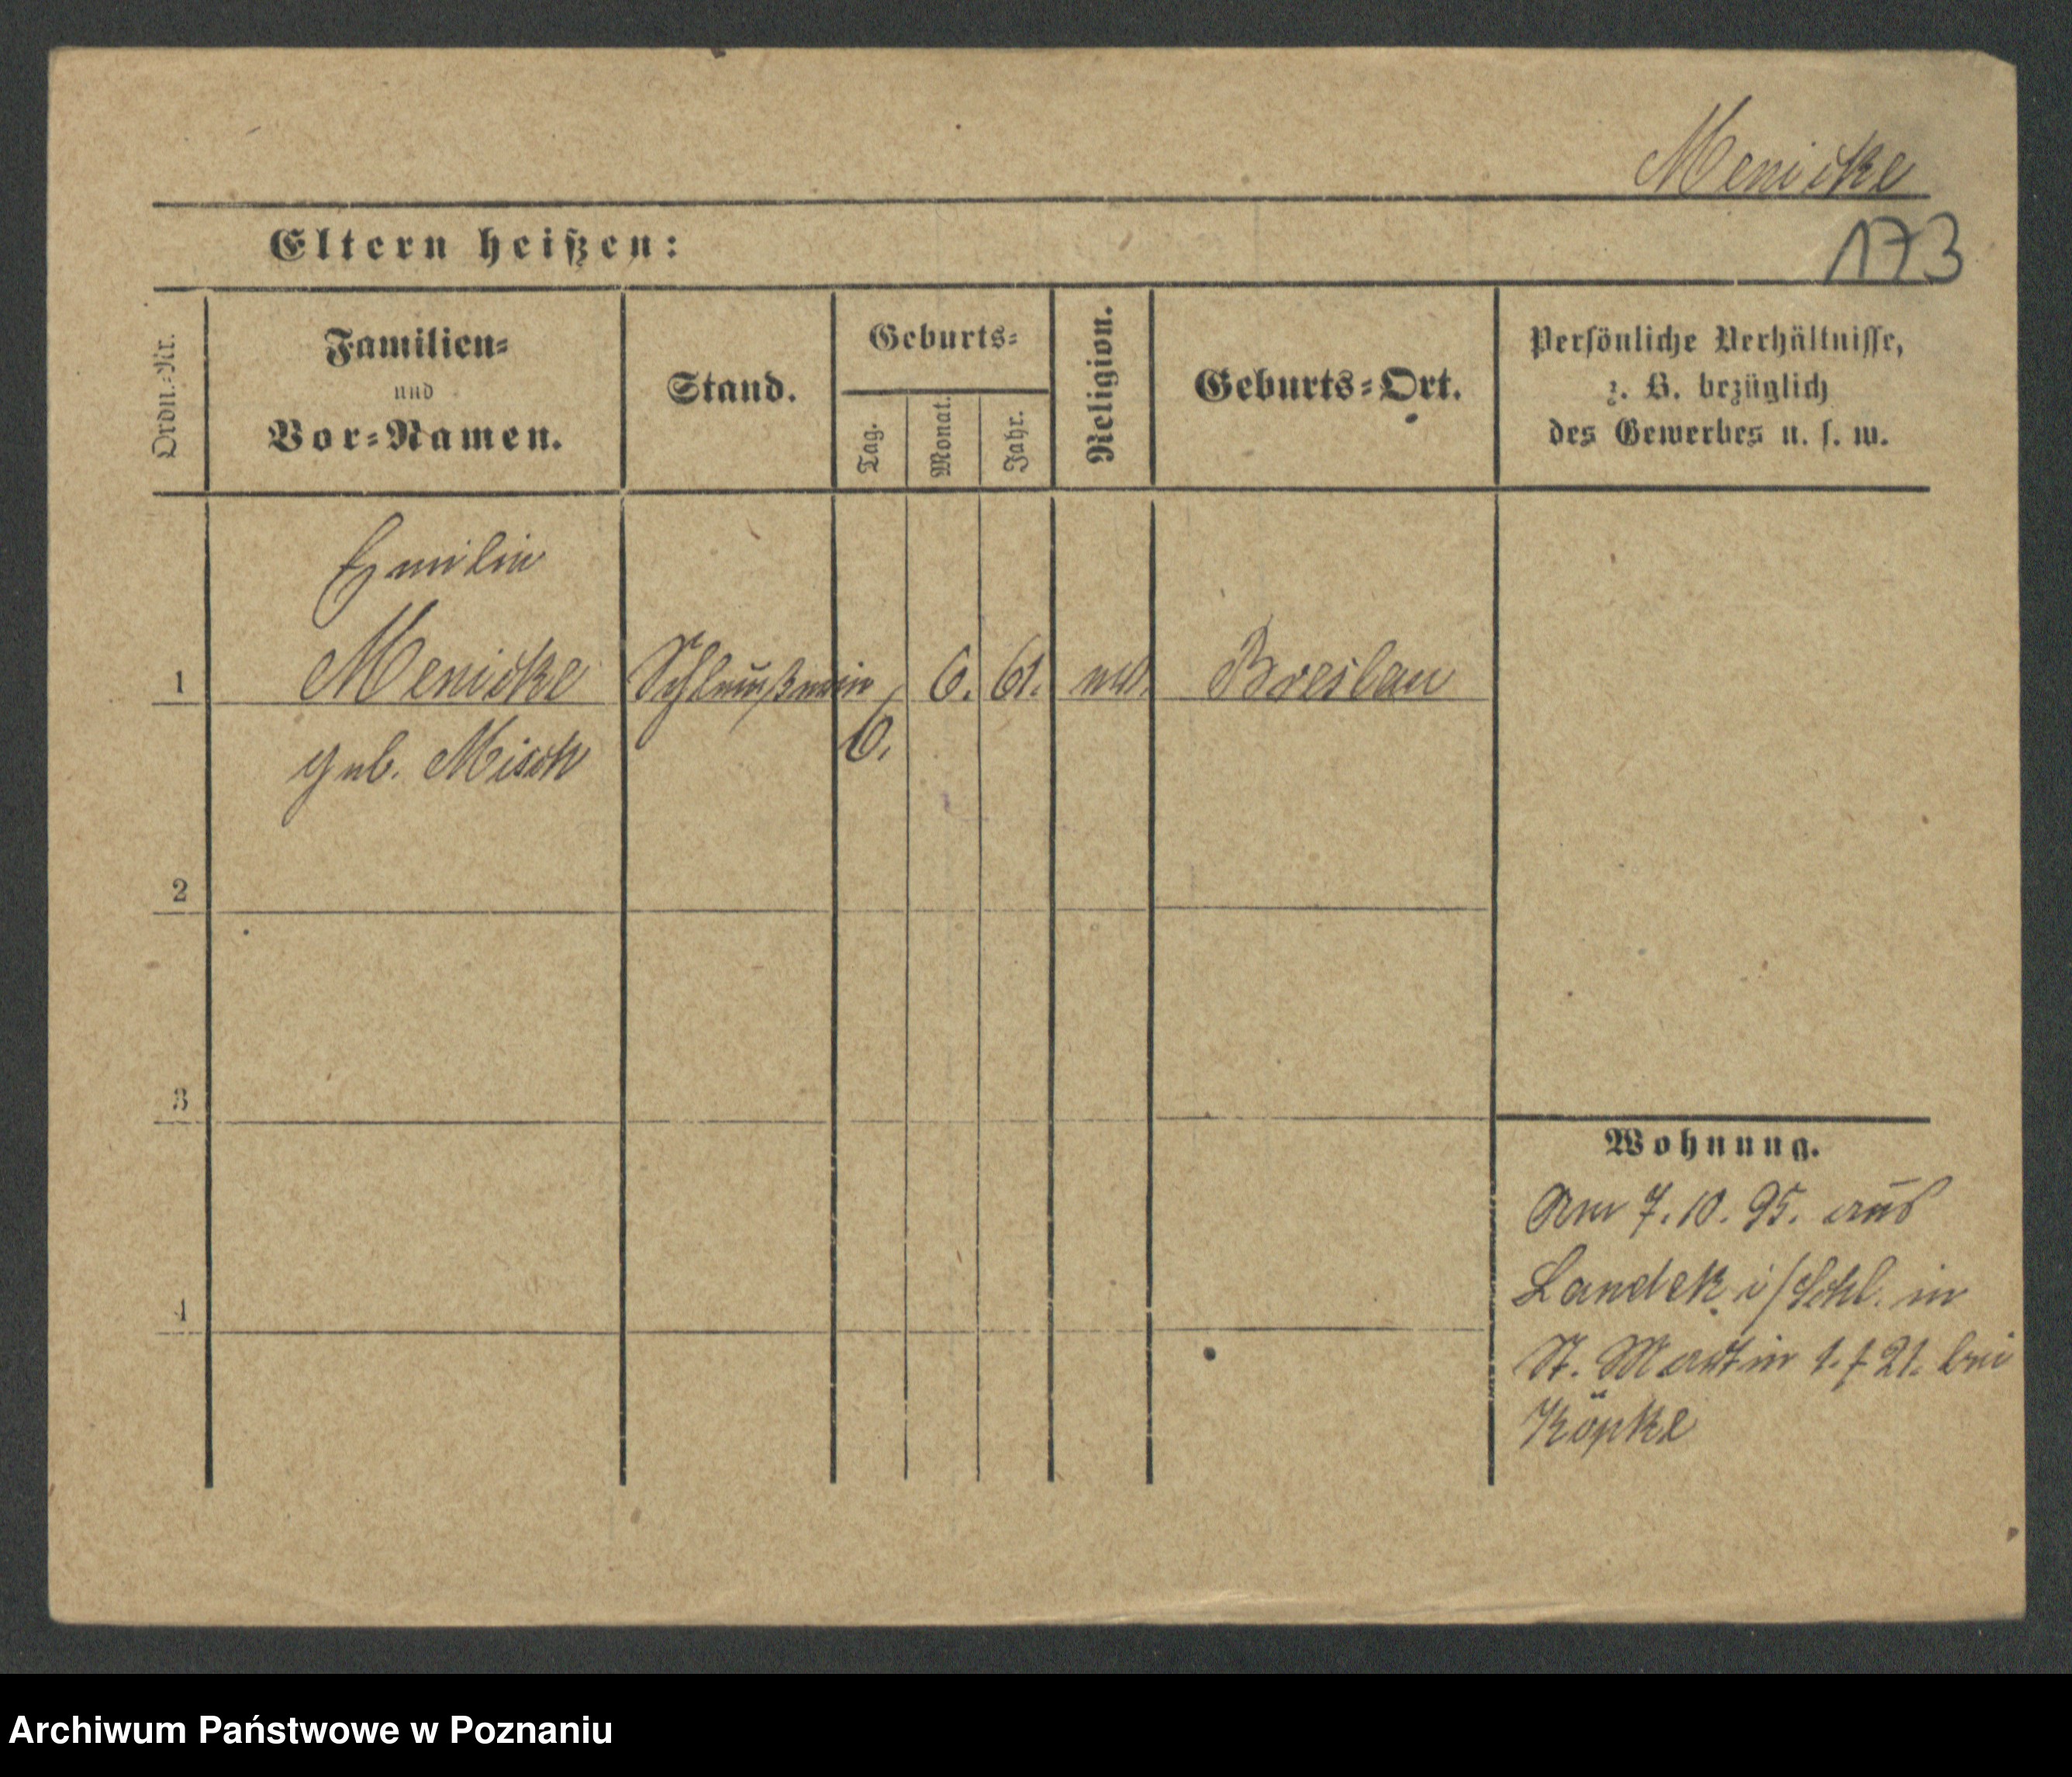 Menicke
173
Eltern heißen:
Ordn.=Nr.
Familien=
und
Vor=Namen.
Stand.
Geburts=
Tag.
Monat.
Jahr.
Religion.
Geburts=Ort.
Persönliche Verhältnisse,
z. B. bezüglich
des Gewerbes u. s. w.
Emilie
1 Menicke 6. 61. Breslau
geb. Misch 6.
2
3
4
Wohnung.
Am 7.10.95. aus
Landek i/Schl. in
St. Martin 21. bei
Köpke
Archiwum Państwowe w Poznaniu